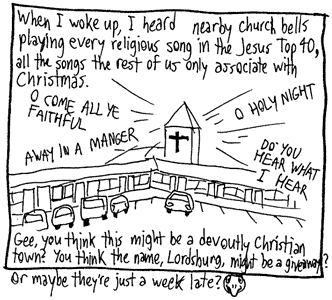 When I woke up, I heard nearby church bells
playing every religious song in the Jesus Top 40,
all the songs the rest of us only associate with
Christmas.
O COME ALL YE
FAITHFUL
O HOLY NIGHT
AWAY IN A MANGER
DO YOU
HEAR WHAT
I HEAR
Gee, you think this might be a devoutly Christian
town? You think the name, Lordsburg, might be a giveaway?
Or maybe they're just a week late?